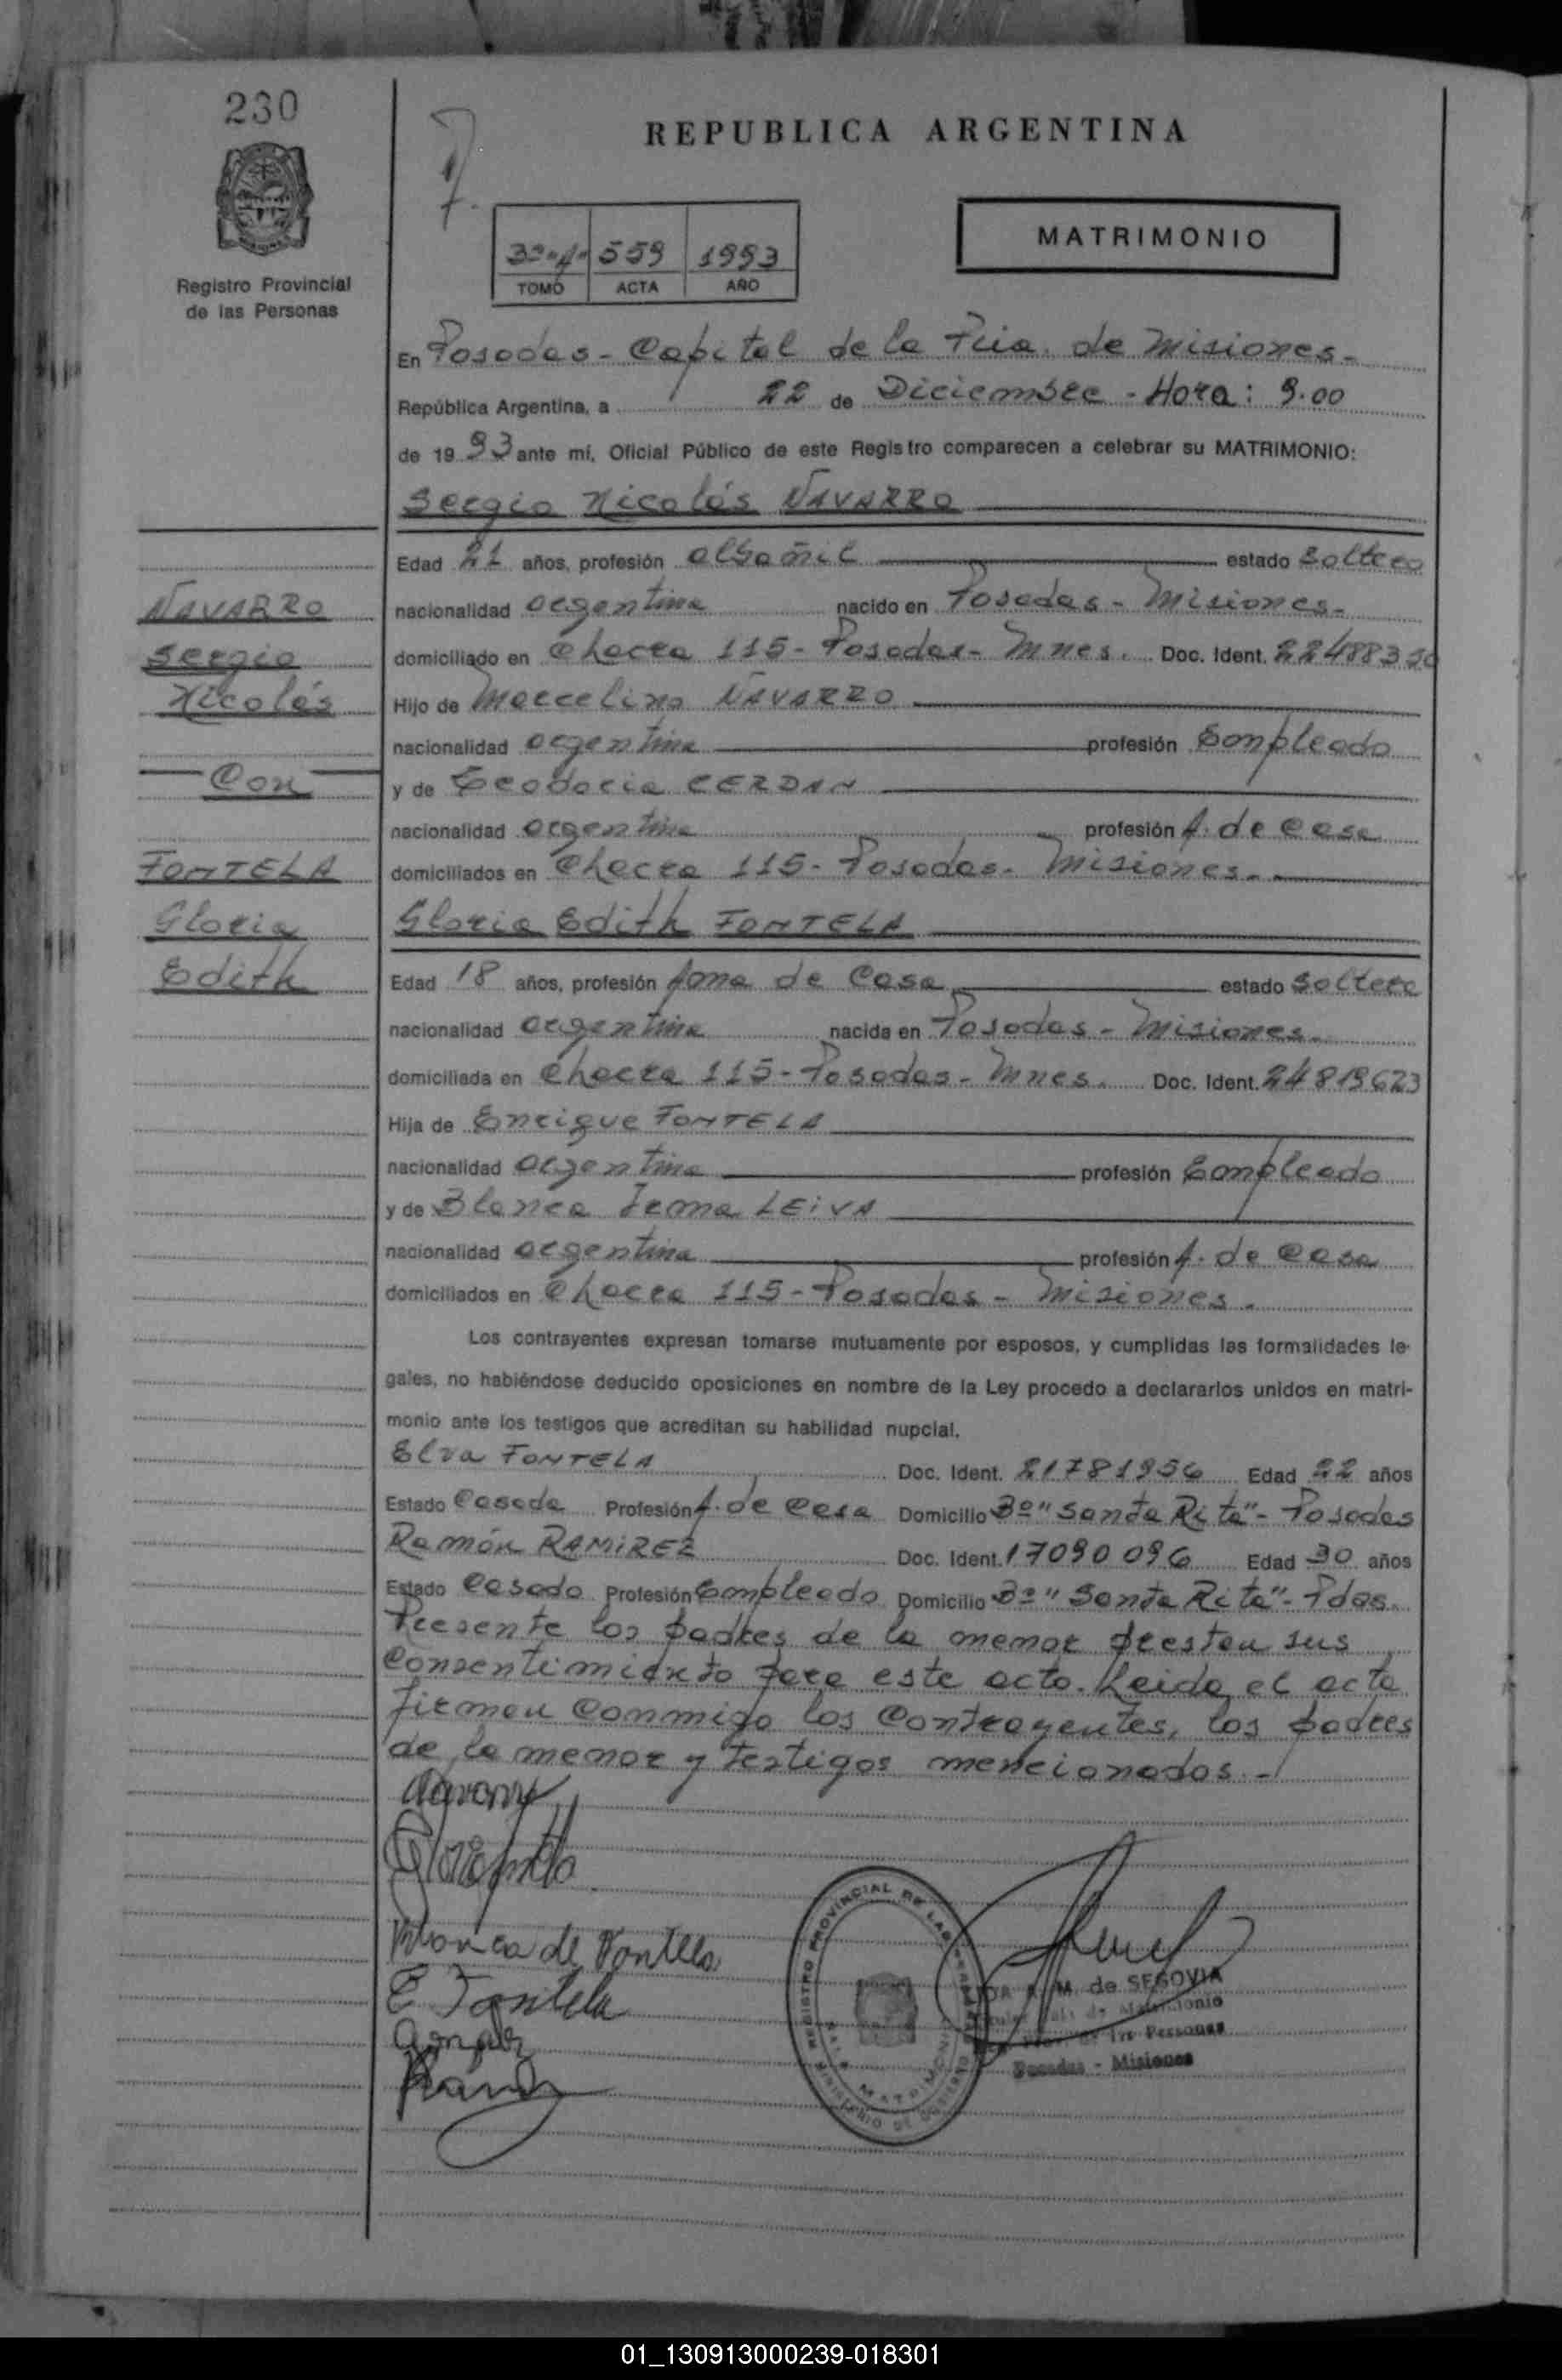 230
REPUBLICA ARGENTINA
MATRIMONIO
Registro Provincial
de las Personas
3º "A" 559 1993
TOMO ACTA AÑO
En Posadas - Capital de la Pcia. de Misiones -
República Argentina, a 22 de Diciembre - Hora: 9.00
de 1993 ante mí, Oficial Público de este Registro comparecen a celebrar su MATRIMONIO:
Sergio Nicolás NAVARRO
Edad 21 años, profesión albañil estado Soltero
nacionalidad argentina nacido en Posadas - Misiones -
domiciliado en Chacra 115 - Posadas - Mnes. Doc. Ident. 22488330
Hijo de Marcelino NAVARRO
nacionalidad argentina profesión Empleado
y de Teodocia CERDAN
nacionalidad argentina profesión A. de Casa
domiciliados en Chacra 115 - Posadas - Misiones -
Gloria Edith FONTELA
Edad 18 años, profesión Ama de Casa estado Soltera
nacionalidad argentina nacida en Posadas - Misiones -
domiciliada en Chacra 115 - Posadas - Mnes. Doc. Ident. 24819623
Hija de Enrique FONTELA
nacionalidad argentina profesión Empleado
y de Blanca Irma LEIVA
nacionalidad argentina profesión A. de Casa
domiciliados en Chacra 115 - Posadas - Misiones.
Los contrayentes expresan tomarse mutuamente por esposos, y cumplidas las formalidades le-
gales, no habiéndose deducido oposiciones en nombre de la Ley procedo a declararlos unidos en matri-
monio ante los testigos que acreditan su habilidad nupcial.
Elva FONTELA Doc. Ident. 21781956 Edad 22 años
Estado Casada Profesión A. de Casa Domicilio Bº "Santa Rita" - Posadas
Ramón RAMIREZ Doc. Ident. 17090096 Edad 30 años
Estado Casado Profesión Empleado Domicilio Bº "Santa Rita" - Pdas.
Presente los padres de la menor prestan sus
Consentimiento para este acto. Leida el acta
firman conmigo los Contrayentes, los padres
de la menor y testigos mencionados. -
NAVARRO
Sergio
Nicolás
Con
FONTELA
Gloria
Edith
Blanca de Fontela
E Fontela
REGISTRO PROVINCIAL DE LAS PERSONAS
MATRIMONIO
MINISTERIO DE GOBIERNO
M. de SEGOVIA
de Matrimonio
de las Personas
Posadas - Misiones
01_130913000239-018301